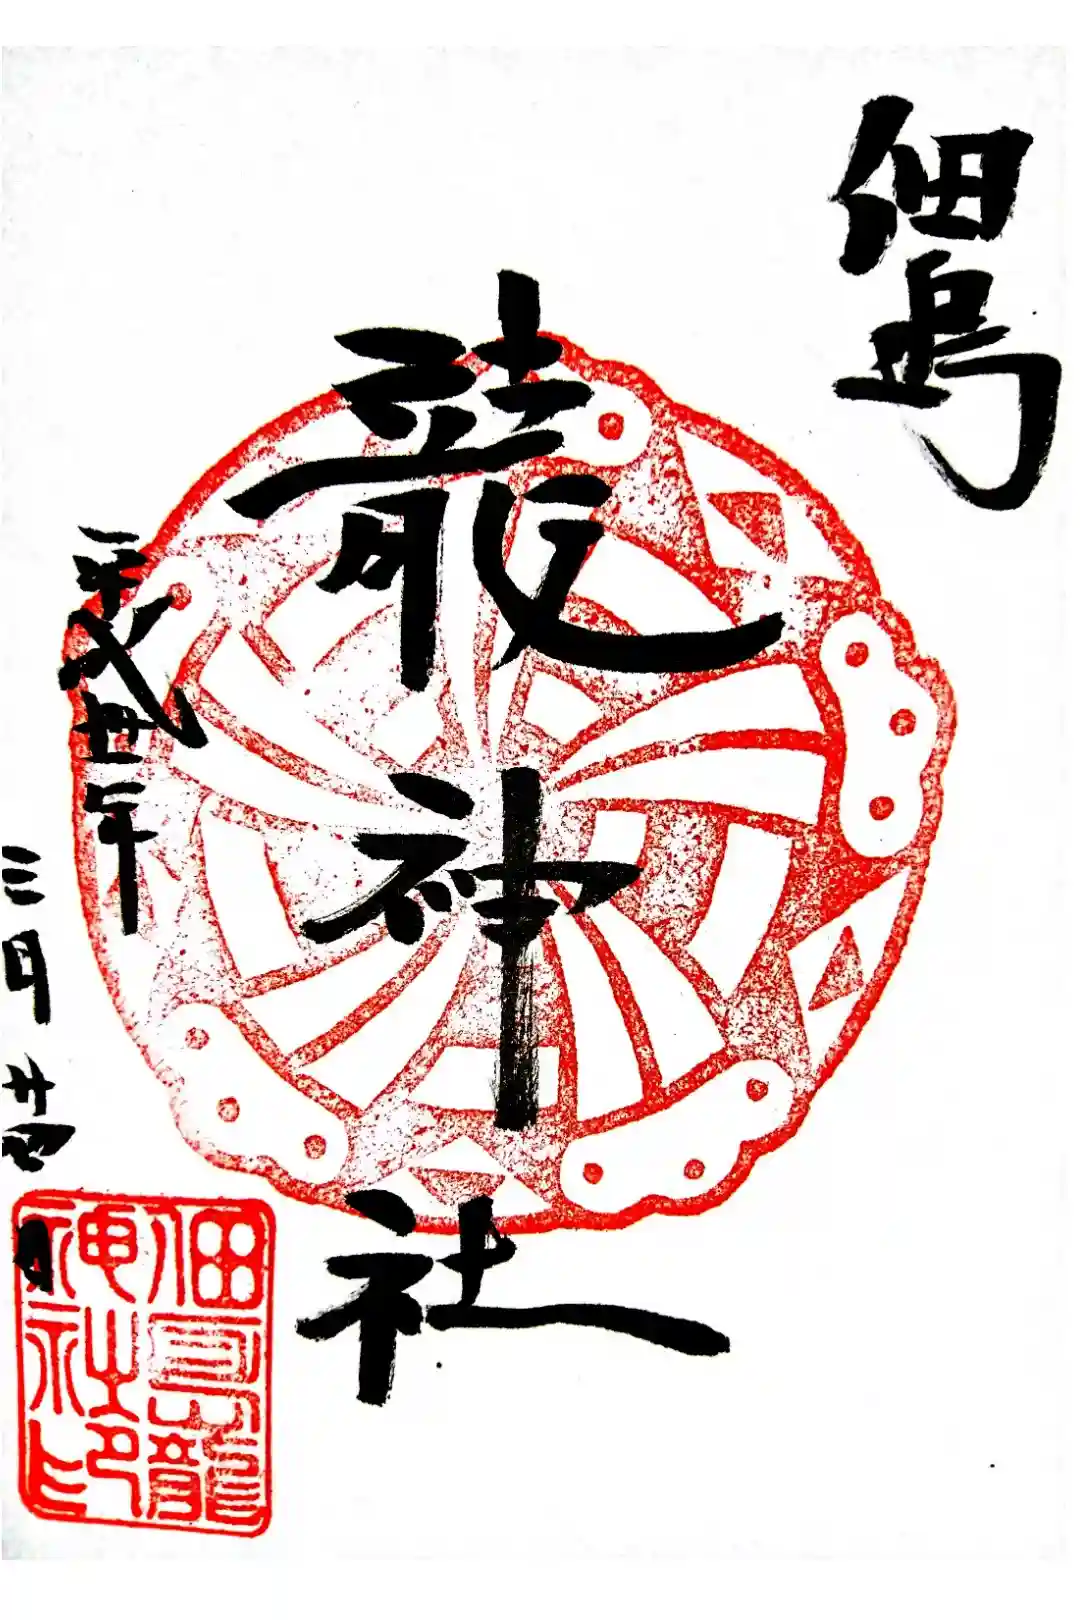 佃島
龍神社
平成卅年
三月廿四日
佃島龍
神社印